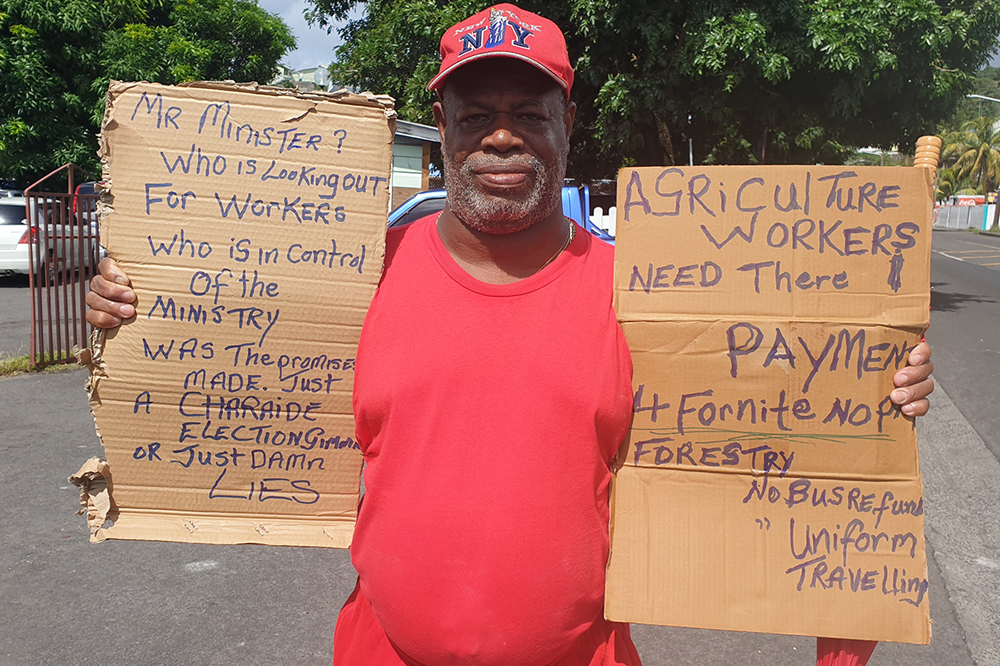 NEW YORK
NY
MR MINISTER?
WHO IS LOOKING OUT
FOR WORKERS
WHO IS IN CONTROL
OF the
MINISTRY
WAS THE PROMISES
MADE. JUST
A CHARAIDE
ELECTION
OR JUST DAMN
LIES
AGRICULTURE
WORKERS
NEED There $
PAYMEN
4 Fornite NO
FORESTRY
NO BUS REFUND
" Uniform
TRAVELLING